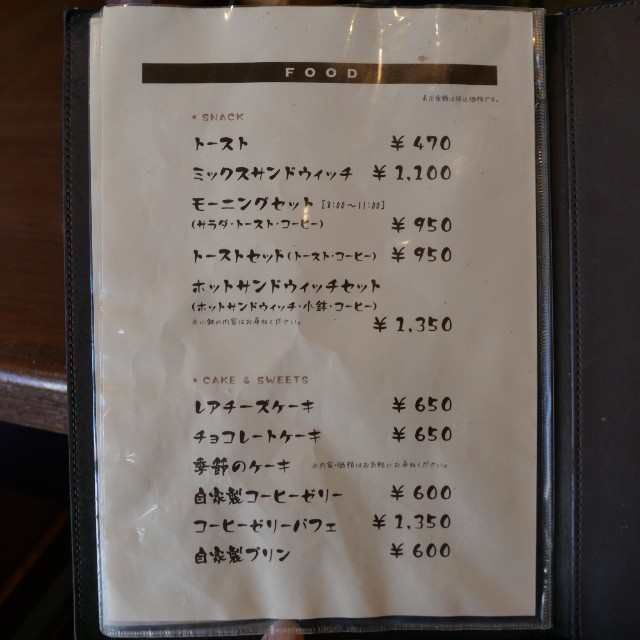 FOOD
表示金額は税込価格です。
* SNACK
トースト ¥470
ミックスサンドウィッチ ¥1,100
モーニングセット [8:00~11:00]
(サラダ・トースト・コーヒー) ¥950
トーストセット(トースト・コーヒー) ¥950
ホットサンドウィッチセット
(ホットサンドウィッチ・小鉢・コーヒー)
※小鉢の内容はお尋ねください。 ¥1,350
* CAKE & SWEETS
レアチーズケーキ ¥650
チョコレートケーキ ¥650
季節のケーキ ※内容・価格はお気軽にお尋ねください。
自家製コーヒーゼリー ¥600
コーヒーゼリーパフェ ¥1,350
自家製プリン ¥600